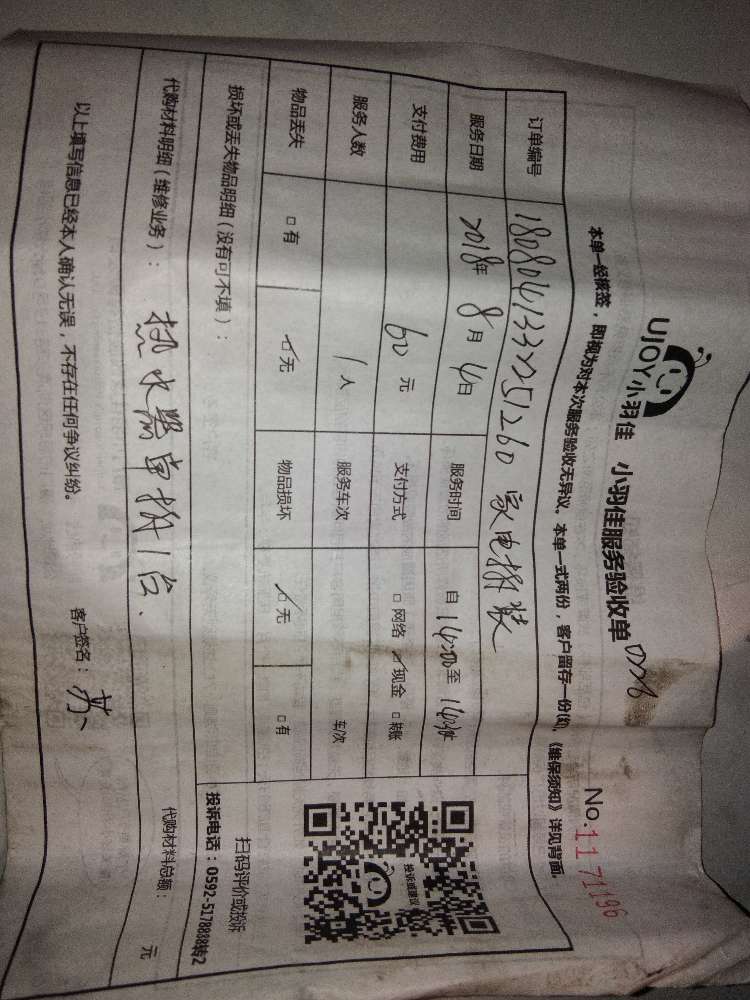 UJOY小羽佳 小羽佳服务验收单 No.1171196
本单一经核签，即视为对本次服务验收无异议。本单一式两份，客户留存一份(红)，《维保须知》详见背面。
订单编号 家电拆装
服务日期 2018年 8月 4日 服务时间 自 14:00至
支付费用 60 元 支付方式 □网络 ☑现金 □转账
服务人数 1 人 服务车次 车/次
物品丢失 □有 ☑无 物品损坏 ☑无 □有
损坏或丢失物品明细（没有可不填）：
代购材料明细（维修业务）： 热水器单拆1台、
代购材料总额： 元
以上填写信息已经本人确认无误，不存在任何争议纠纷。 客户签名：
投诉或建议
扫码评价或投诉
投诉电话：0592-5178888转2